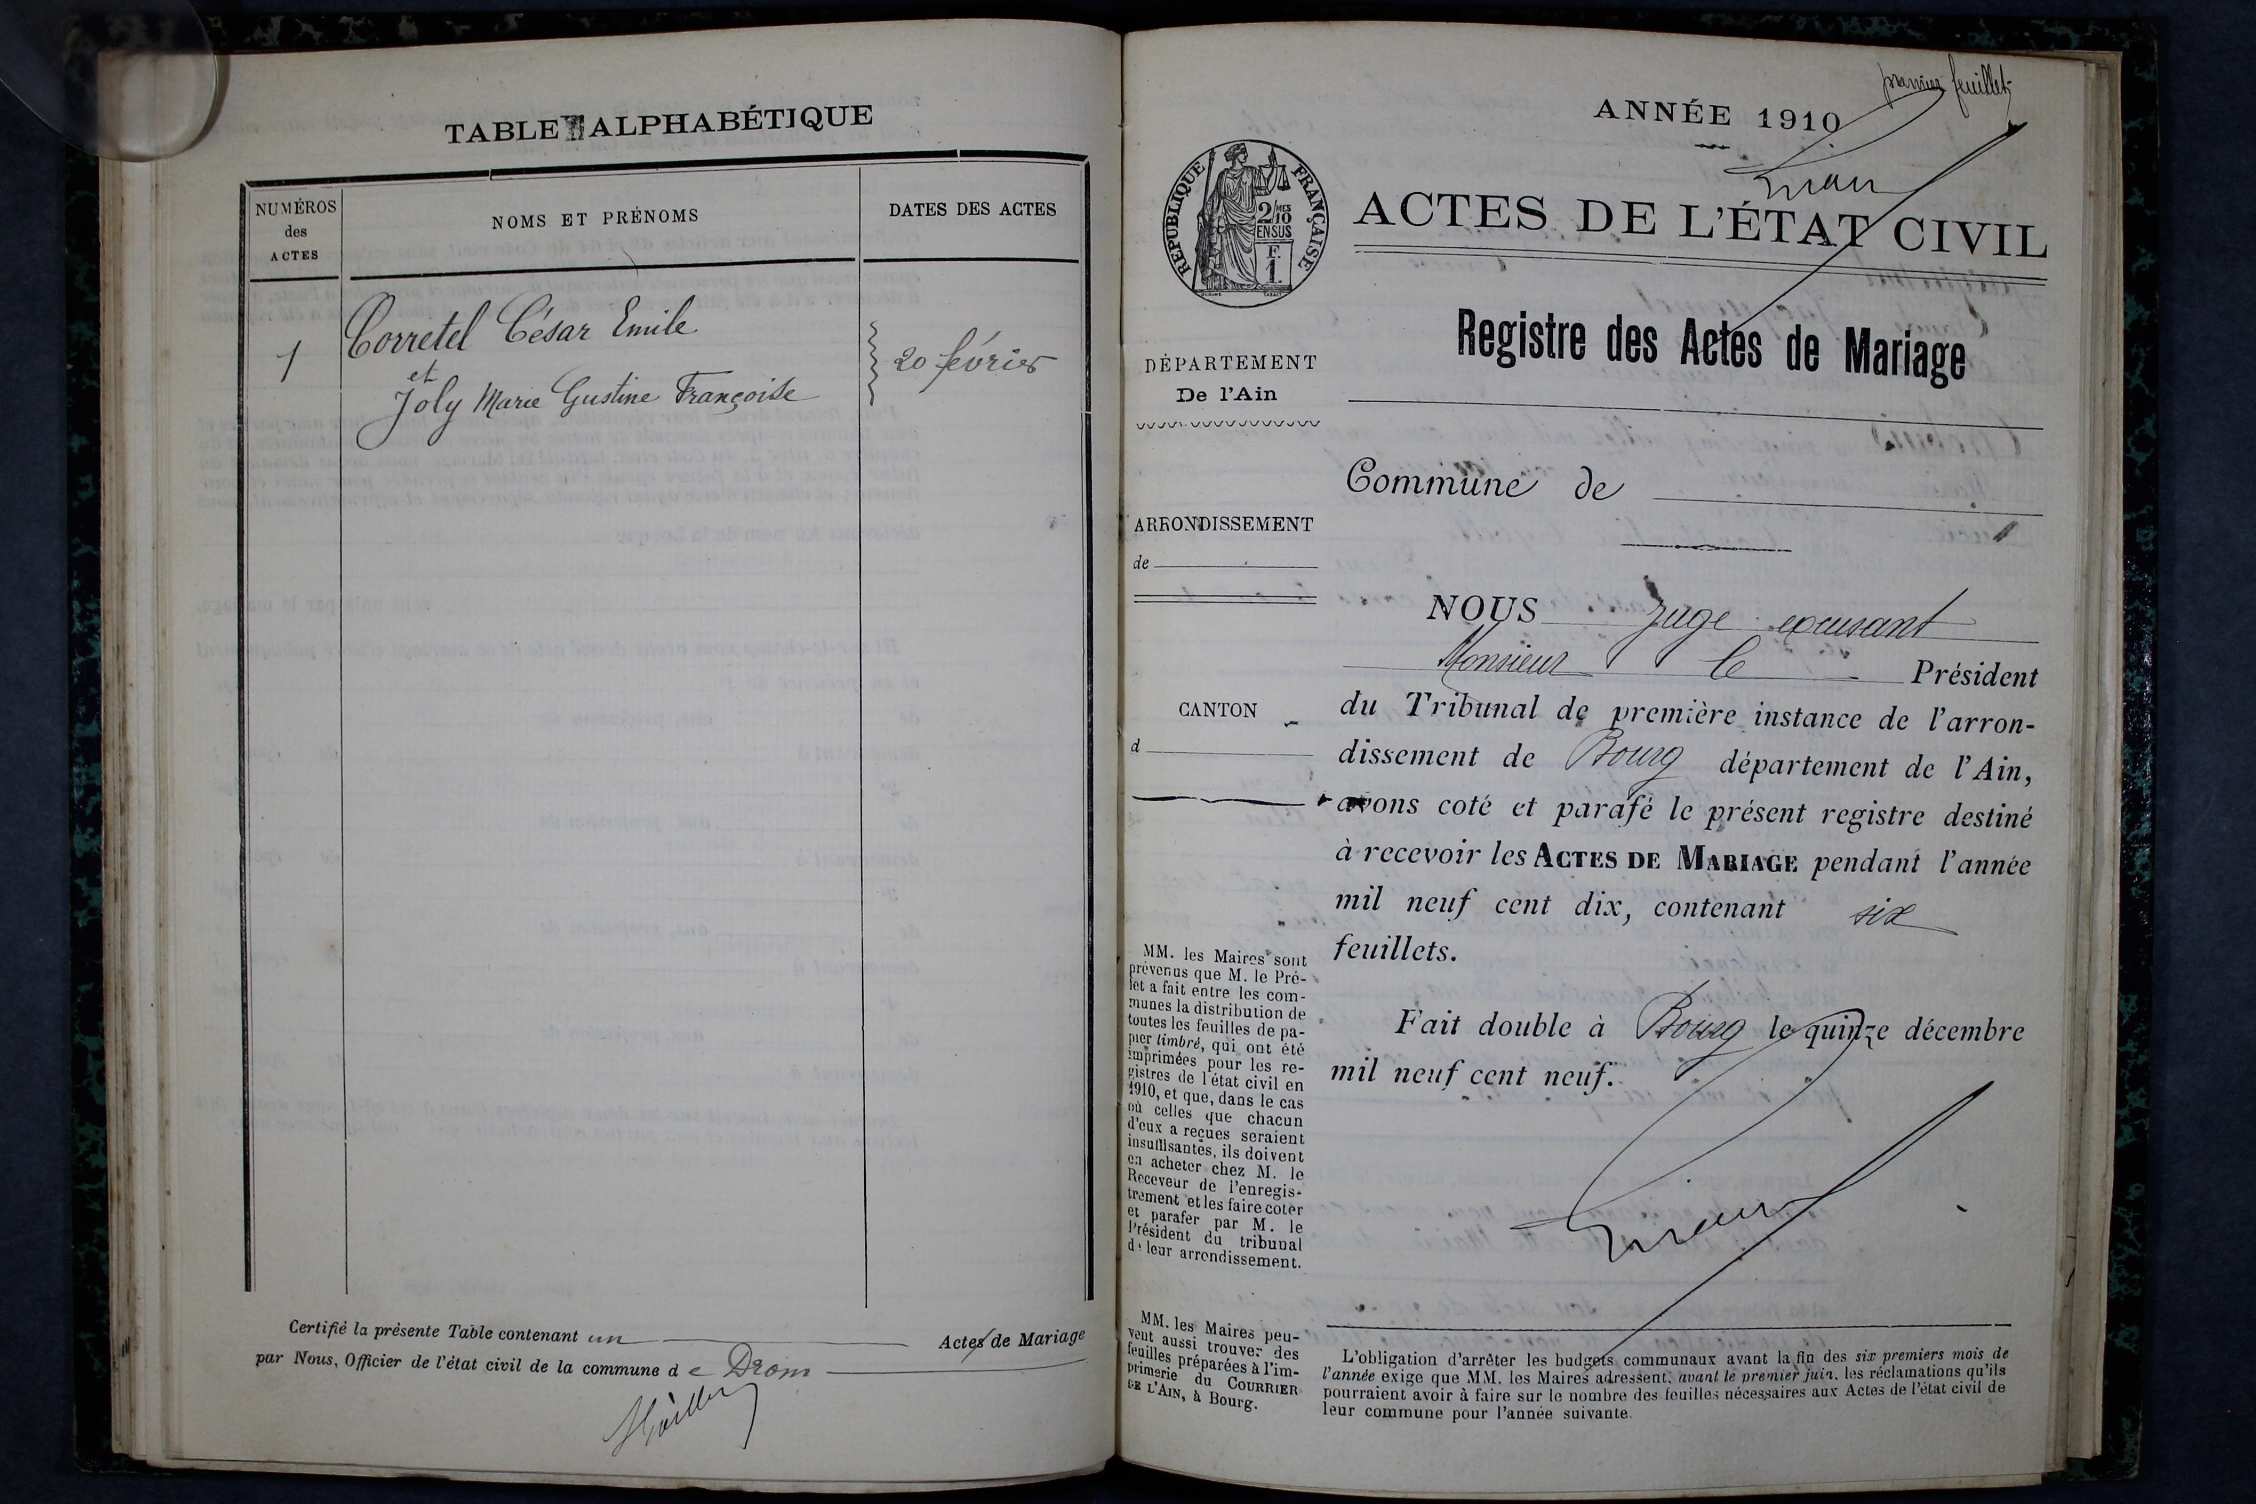 TABLE ALPHABÉTIQUE
NUMÉROS
des
ACTES
NOMS ET PRÉNOMS
DATES DES ACTES
1
Corretel César Emile
et
Joly Marie Gustine Françoise
20 février
Certifié la présente Table contenant un Actes de Mariage
par Nous, Officier de l'état civil de la commune d e Drom
premier feuillet
ANNÉE 1910
RÉPUBLIQUE FRANÇAISE
2/10 MES
EN SUS
F.
1.
ACTES DE L'ÉTAT CIVIL
Registre des Actes de Mariage
DÉPARTEMENT
De l'Ain
Commune de
ARRONDISSEMENT
de
CANTON
d
NOUS Juge excusant
Monsieur le Président
du Tribunal de première instance de l'arron-
dissement de Bourg département de l'Ain,
avons coté et parafé le présent registre destiné
à recevoir les ACTES DE MARIAGE pendant l'année
mil neuf cent dix, contenant six
feuillets.
Fait double à Bourg le quinze décembre
mil neuf cent neuf.
MM. les Maires sont
prévenus que M. le Pré-
fet a fait entre les com-
munes la distribution de
toutes les feuilles de pa-
pier timbré, qui ont été
imprimées pour les re-
gistres de l'état civil en
1910, et que, dans le cas
où celles que chacun
d'eux a reçues seraient
insuffisantes, ils doivent
en acheter chez M. le
Receveur de l'enregis-
trement et les faire coter
et parafer par M. le
Président du tribunal
de leur arrondissement.
MM. les Maires peu-
vent aussi trouver des
feuilles préparées à l'im-
primerie du COURRIER
DE L'AIN, à Bourg.
L'obligation d'arrêter les budgets communaux avant la fin des six premiers mois de
l'année exige que MM. les Maires adressent, avant le premier juin, les réclamations qu'ils
pourraient avoir à faire sur le nombre des feuilles nécessaires aux Actes de l'état civil de
leur commune pour l'année suivante.